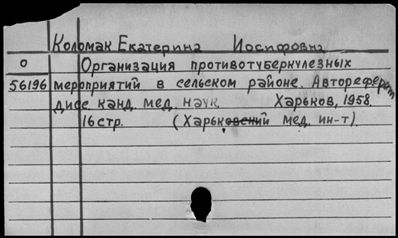 Коломак Екатерина Иосифовна
О Организация противотуберкулезных
56196 мероприятий в сельском районе. Автореферат
дисс канд. мед. наук Харьков, 1958.
16 стр. (Харьковский мед. ин-т).